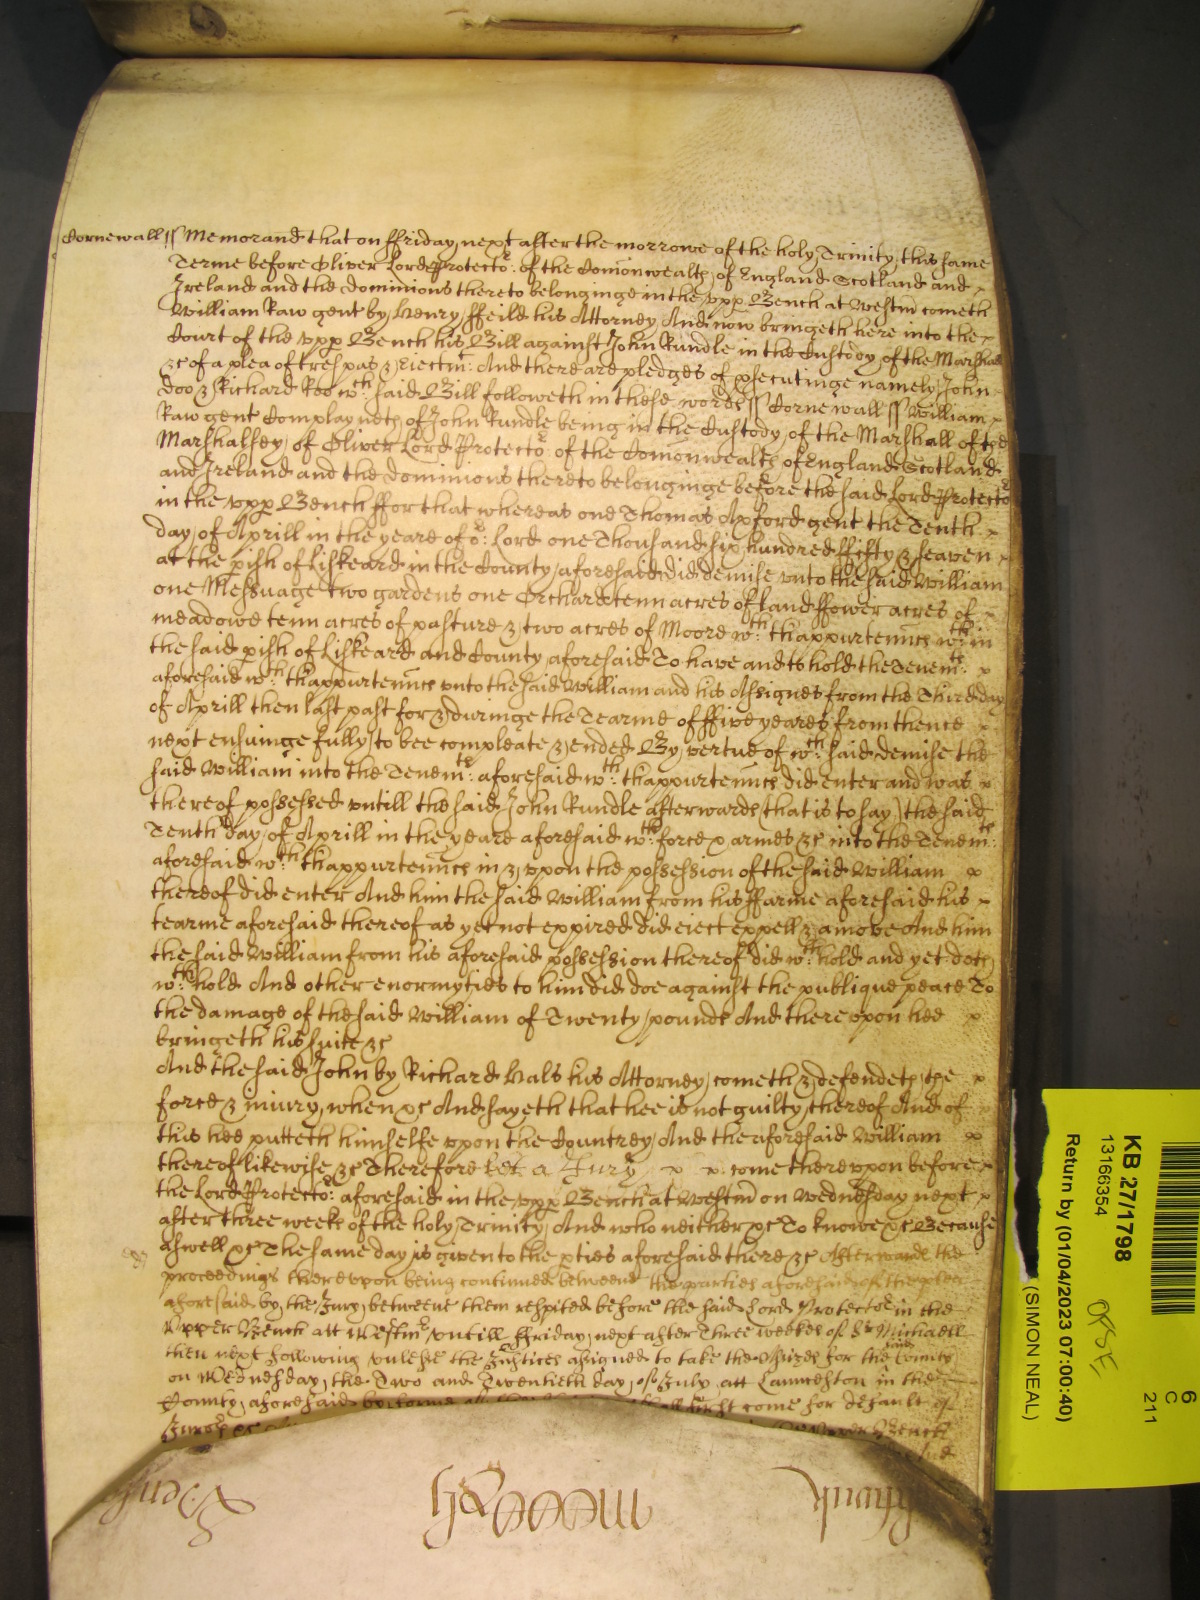 Cornewall ss Memorand that on ffriday next after the morrowe of the holy Trinity this same
Terme before Oliver Lord Protector: of the Comonwealth of England Scotland and
Ireland and the dominions thereto belonginge in the vpp Bench at Westm cometh
William Raw gent by Henry ffeild his Attorney And now bringeth here into the
Court of the vpp Bench his Bill against John Rundle in the Custody of the Marshall
&c of a plea of trespas & Eiectmt: And there are pledges of psecutinge namely John
Doo & Richard Roo wch: said Bill followeth in these words ss Cornewall ss William
Raw gent Complayneth of John Rundle being in the Custody of the Marshall of the
Marshalsey of Oliver Lord Protector: of the Comonwealth of England Scotland
and Ireland and the dominions thereto belonginge before the said Lord Protector
in the vpp Bench ffor that whereas one Thomas Apford gent the Tenth
day of Aprill in the yeare of or: Lord one Thousand six hundred ffifty & seaven
at the pish of Liskeard in the County aforesaid did demise vnto the said William
one Messuage two gardens one Orchard tenn acres of land ffower acres of
meadowe tenn acres of pasture & two acres of Moore wth: thappurtennces wch: in
the said pish of Liskeard and County aforesaid To have and to hold the Tenemts:
aforesaid wth: thappurtennces vnto the said William and his Assignes from the Third day
of Aprill then last past for & duringe the Tearme of ffive yeares from thence
next ensuinge fully to bee compleate & ended By vertue of wch: said demise the
said William into the Tenemts: aforesaid wth: thappurtennces did enter and was
thereof possessed vntill the said John Rundle afterwards that is to say the said
Tenth day of Aprill in the yeare aforesaid wth: force & armes &c into the Tenemts:
aforesaid wth: thappurtennces in & vpon the possession of the said William
thereof did enter And him the said William from his ffarme aforesaid his
tearme aforesaid thereof as yet not expired did eiect expell & amove And him
the said William from his aforesaid possession thereof did wth: hold and yet doth
wth: hold And other enormyties to him did doe against the publique peace To
the damage of the said William of Twenty pounds And there vpon hee
bringeth his suite &c
And the said John by Richard Hals his Attorney cometh & defendeth the
force & iniury when &c And sayeth that hee is not guilty thereof And of
this hee putteth himselfe vppon the Countrey And the aforesaid William
thereof likewise &c Therefore let a Jury come there vpon before
the Lord Protector: aforesaid in the vpp Bench at Westm on Wednesday next
after three weeks of the holy Trinity And who neither &c To knowe &c Because
aswell &c The same day is given to the pties aforesaid there &c Afterwards the
proceedings there vpon being continued betweene the parties aforesaid of the plea
aforesaid by the Jury betweene them respited before the said Lord Protector in the
Vpper Bench att Westmr vntill ffriday next after Three weekes of St Michaell
then next following vnlesse the Justices assigned to take the Assizes for the said County
on Wednesday the Two and Twentieth day of July att Launceston in the
County aforesaid by forme shall first come for default of
Jurors &c Vpper Bench
KB 27/1798
13166354
Return by (01/04/2023 07:00:40)
(SIMON NEAL)
6
C
211